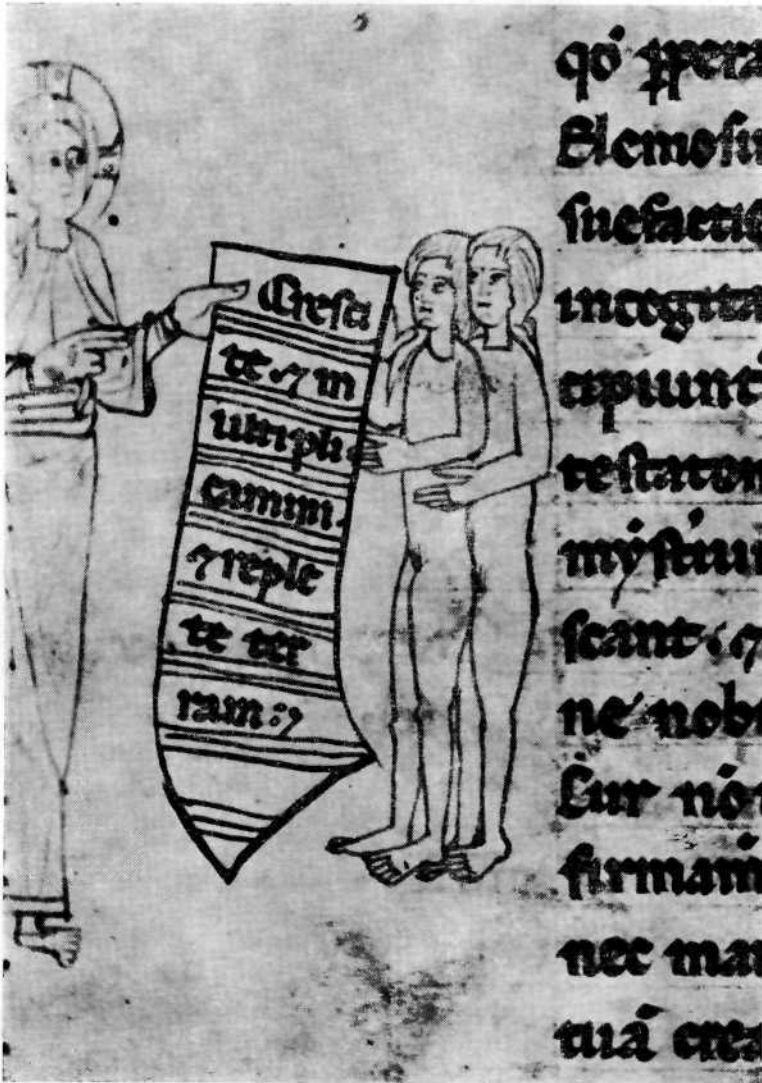 Cresci
te ⁊ m
ultipli
camini
⁊ reple
te ter
ram
qđ
Elemosin
suefactio
integrita
cipiunt
testatom
mỹstiu
scant ⁊
ne nobi
Cur nō
firmam
nec mar
tuā crea